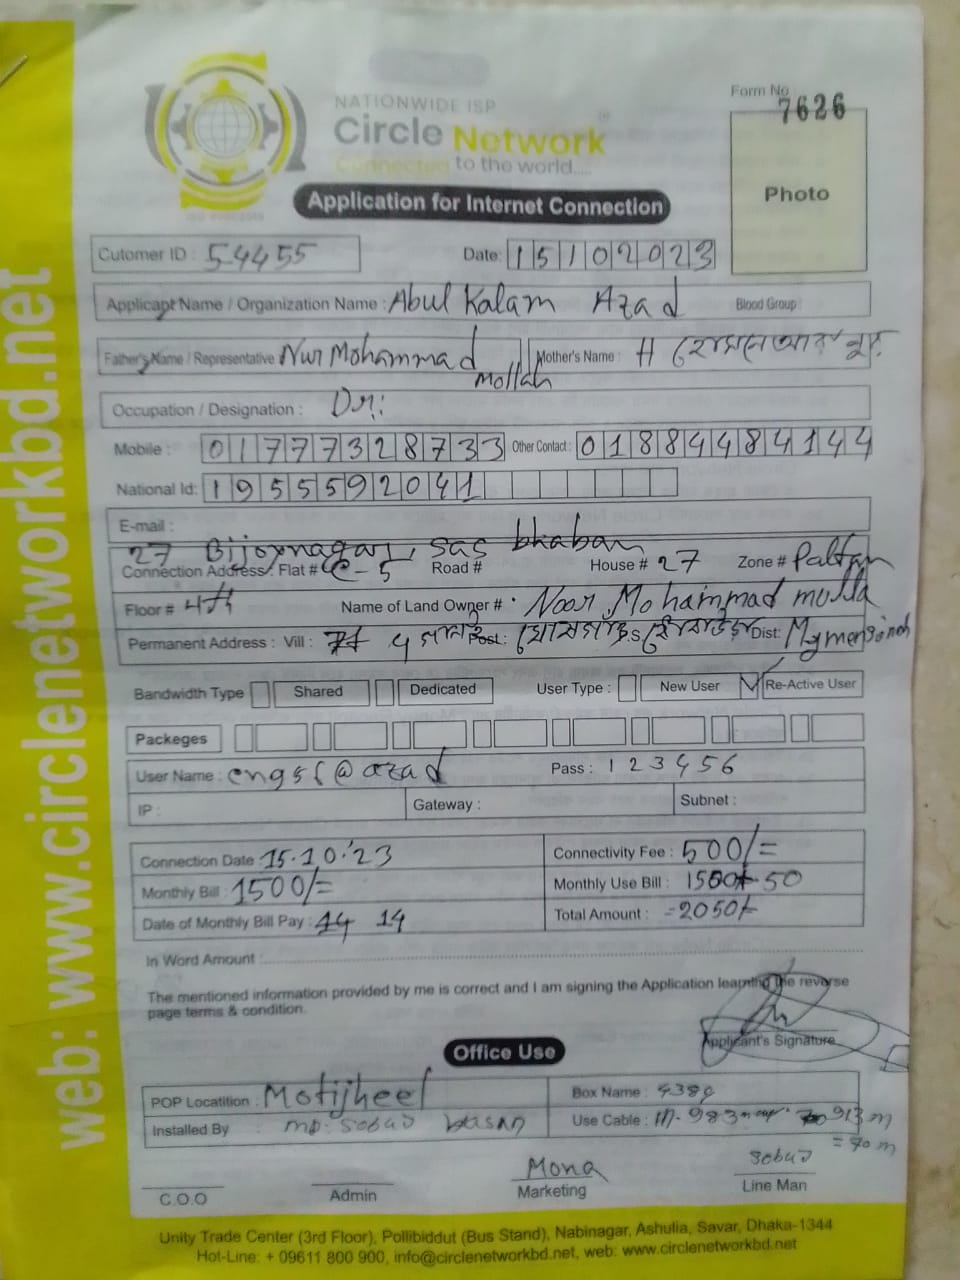 Form No
7626
NATIONWIDE ISP
Circle Network
Connected to the world.....
Application for Internet Connection
Photo
Cutomer ID : 54455 Date: 15102023
Applicant Name / Organization Name : Abul Kalam Azad Blood Group :
Father's Name / Representative Nur Mohammad Mollah Mother's Name :
Occupation / Designation : Dr:
Mobile : 01777328733 Other Contact : 01884484144
National Id: 1955592041
E-mail :
27 Bijoynagar, sas bhaban
Connection Address: Flat # C-5 Road # House # 27 Zone # Paltan
Floor # 4th Name of Land Owner # Noor Mohammad molla
Permanent Address : Vill : Post: P.S Dist: Mymensingh
Bandwidth Type Shared Dedicated User Type : New User Re-Active User
Packeges
User Name : @azad Pass : 123456
IP : Gateway : Subnet :
Connection Date 15.10.'23 Connectivity Fee : 500/=
Monthly Bill : 1500/= Monthly Use Bill : 50
Date of Monthly Bill Pay : 14 Total Amount : =2050/-
In Word Amount :
The mentioned information provided by me is correct and I am signing the Application learning the reverse
page terms & condition.
Applicant's Signature
Office Use
POP Locatition : Motijheel Box Name :
Installed By : MD. Sobuj Hasan Use Cable : 983 913 m
= 70 m
Mona Sobuj
C.O.O Admin Marketing Line Man
Unity Trade Center (3rd Floor), Pollibiddut (Bus Stand), Nabinagar, Ashulia, Savar, Dhaka-1344
Hot-Line: + 09611 800 900, info@circlenetworkbd.net, web: www.circlenetworkbd.net
web: www.circlenetworkbd.net